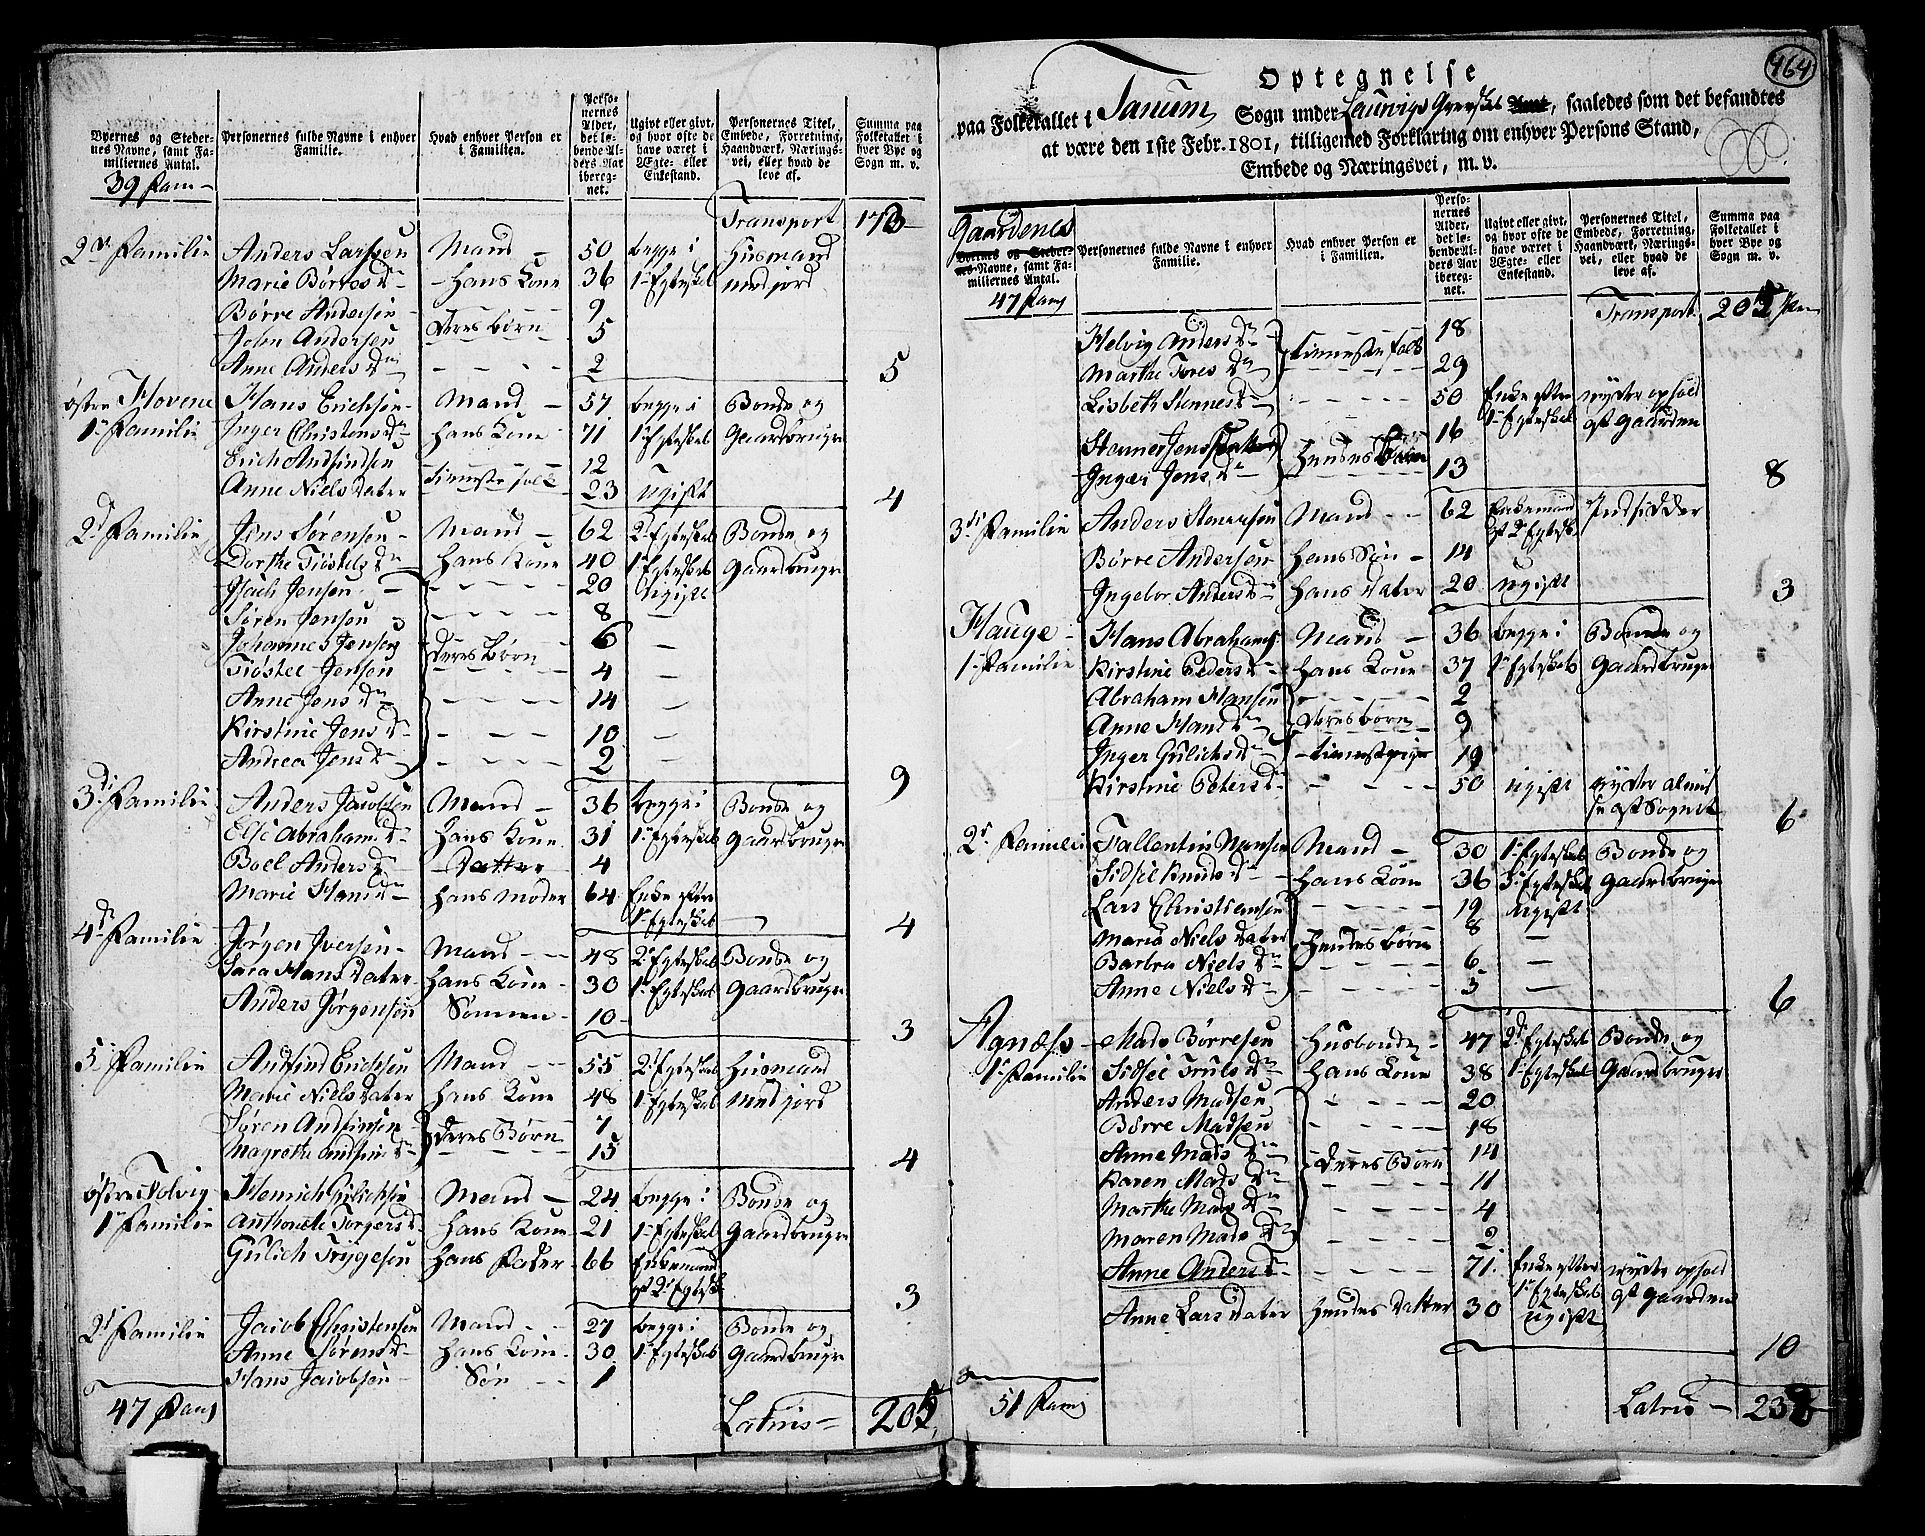 Byernes og Steder-
nes Navne, samt Fa-
miliernes Antal.
39 Fam
Personernes fulde Navne i enhver
Familie.
Hvad enhver Person er
i Familien.
Perso-
nernes
Alder,
det le-
bende Al-
ders Aar
iberegnet.
Ugivt eller givt,
og hvor ofte de
have været i
Ægte- eller
Enkestand.
Personernes Titel,
Embede, Forretning,
Haandværk, Nærings-
vei, eller hvad de
leve af.
Summa paa
Folketallet i
hver Bye og
Sogn m. v.
Transport 173
2de Familie Anders Larssen Mand 50 begge i Huusmand
Marie Børresdr Hans Kone 36 1 Egteskab med jord
Børre Andersen 9
John Andersen Deres børn 5
Anne Andersdr 2
5
østre Hovene Hans Erichsen Mand 57 begge i Bonde og
1 Familie Inger Christensdr Hans Kone 71 1 Egteskab Gaardbruger
Erich Andfindsen 12
Anne Niels Dater Tienestefolk 23 ugift
4
2 Familie Jens Sørensen Mand 62 2 Egteskab Bonde og
Dorthe Tiøstelsdr Hans Kone 40 1 Egteskab Gaardbruger
Isach Jensen 20 Ugift
Søren Jensen 8
Johannes Jensen Deres børn 6
Tiøstel Jensen 4
Anne Jensdr 14
Kirstine Jensdr 10
Andrea Jensdr 2
9
3di Familie Anders Jacobsen Mand 36 begge i Bonde og
Else Abrahamsdr Hans Kone 31 1 Egteskab Gaardbruger
Boel Andersdr Datter 4
Marie Hansdr Hans Moder 64 Enke efter
1 Egteskab
4
4de Familie Jørgen Iversen Mand 48 2 Egteskab Bonde og
Sara Hans Dater Hans Kone 30 1 Egteskab Gaardbruger
Anders Jørgensen Sønnen 10
3
5 Familie Andfind Erichsen Mand 55 2 Egteskab Huusmand
Marie Niels Dater Hans Kone 48 1 Egteskab Med jord
Søren Andfinsen 7
Magrethe Andfinsdr Deres Børn 15
4
østre Tolvig Henrich Gulichsen Mand 24 begge i Bonde og
1 Familie Anthonette Torgersd Hans Kone 21 1 Egteskab Gaardbruger
Gulich Trygesen Hans Fader 66 Enkemand
af 2 Egtesk
3
2 Familie Jacob Christensen Mand 27 begge i Bonde og
Anne Sørensdr Hans Kone 30 1 Egteskab Gaardbruger
Hans Jacobsen Søn 1
47 Fam Latus 205
464
Optegnelse
paa Folketallet i Tanum Sogn under Laurvigs Grevskab Amt, saaledes som det befandtes
at være den 1ste Febr. 1801, tilligemed Forklaring om enhver Persons Stand,
Embede og Næringsvei, m. v.
Gaardenes
Byernes og Steder-
nes Navne, samt Fa-
miliernes Antal.
47 Fam
Personernes fulde Navne i enhver
Familie.
Hvad enhver Person er
i Familien.
Perso-
nernes
Alder,
det le-
bende Al-
ders Aar
iberegnet.
Ugivt eller givt,
og hvor ofte de
have været i
Ægte- eller
Enkestand.
Personernes Titel,
Embede, Forretning,
Haandværk, Nærings-
vei, eller hvad de
leve af.
Summa paa
Folketallet i
hver Bye og
Sogn m. v.
Transport 205
Helvig Andersdr 18
Marthe Toresdr Tienestefolk 29
Lisbeth Stennersdr 50 Enke efter nyder ophold
1 Egteskab af Gaarden
Stenner Jens 16
Inger Jensdr Hendes Børn 13
8
3di Familie Anders Stenersen Mand 62 Enkemand Indsidder
af 2 Egtesk
Børre Andersen Hans Søn 14
Ingebor Andersdr Hans Dater 20 ugift
3
Hauge Hans Abrahams Mand 36 begge i Bonde og
1 Familie Kirstine Pedersdr Hans Kone 37 1 Egteskab Gaardbruger
Abraham Hansen 2
Anne Hansdr Deres børn 9
Inger Gulichsdr tienestpige 19
Kirstine Petersdr 50 ugift nyder almis
se af Sognet
6
2 Familie Fallentin Mansen Mand 30 1 Egteskab Bonde og
Sidsel Knudsdr Hans Kone 36 3 Egteskab Gaardbruger
Lars Christiansen 19 Ugift
Maria Niels Dater Hendes børn 8
Barbra Nielsdr 6
Anne Nielsdr 3
6
Agnæss Mads Børresen Husbonde 47 2 Egteskab Bonde og
1 Familie Sidsel Trulsdr Hans Kone 38 1 Egteskab Gaardbruger
Anders Madsen 20
Børre Madsen 18
Anne Madsdr 14
Karen Madsdr Deres Børn 11
Marthe Madsdr 4
Maren Madsdr 2
Anne Andersd 71 Enke efter nyder ophold
1 Egteskab af Gaarden
Anne Lars Dater Hendes Datter 30 Ugift
10
51 Fam Latus 238